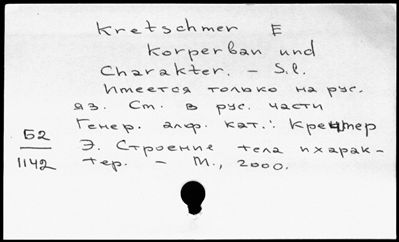 Kretschmer E
Korperban und
Charakter. - S.l.
Имеется только на рус.
яз. См. в рус. части
Генер. алф. кат.: Кречмер
Б2
1142
Э. Строение тела и харак-
тер. - М., 2000.